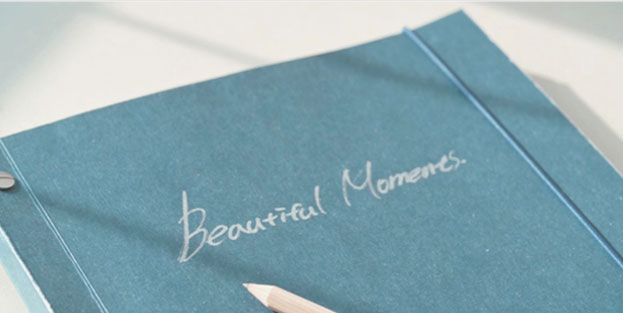 Beautiful Moments.